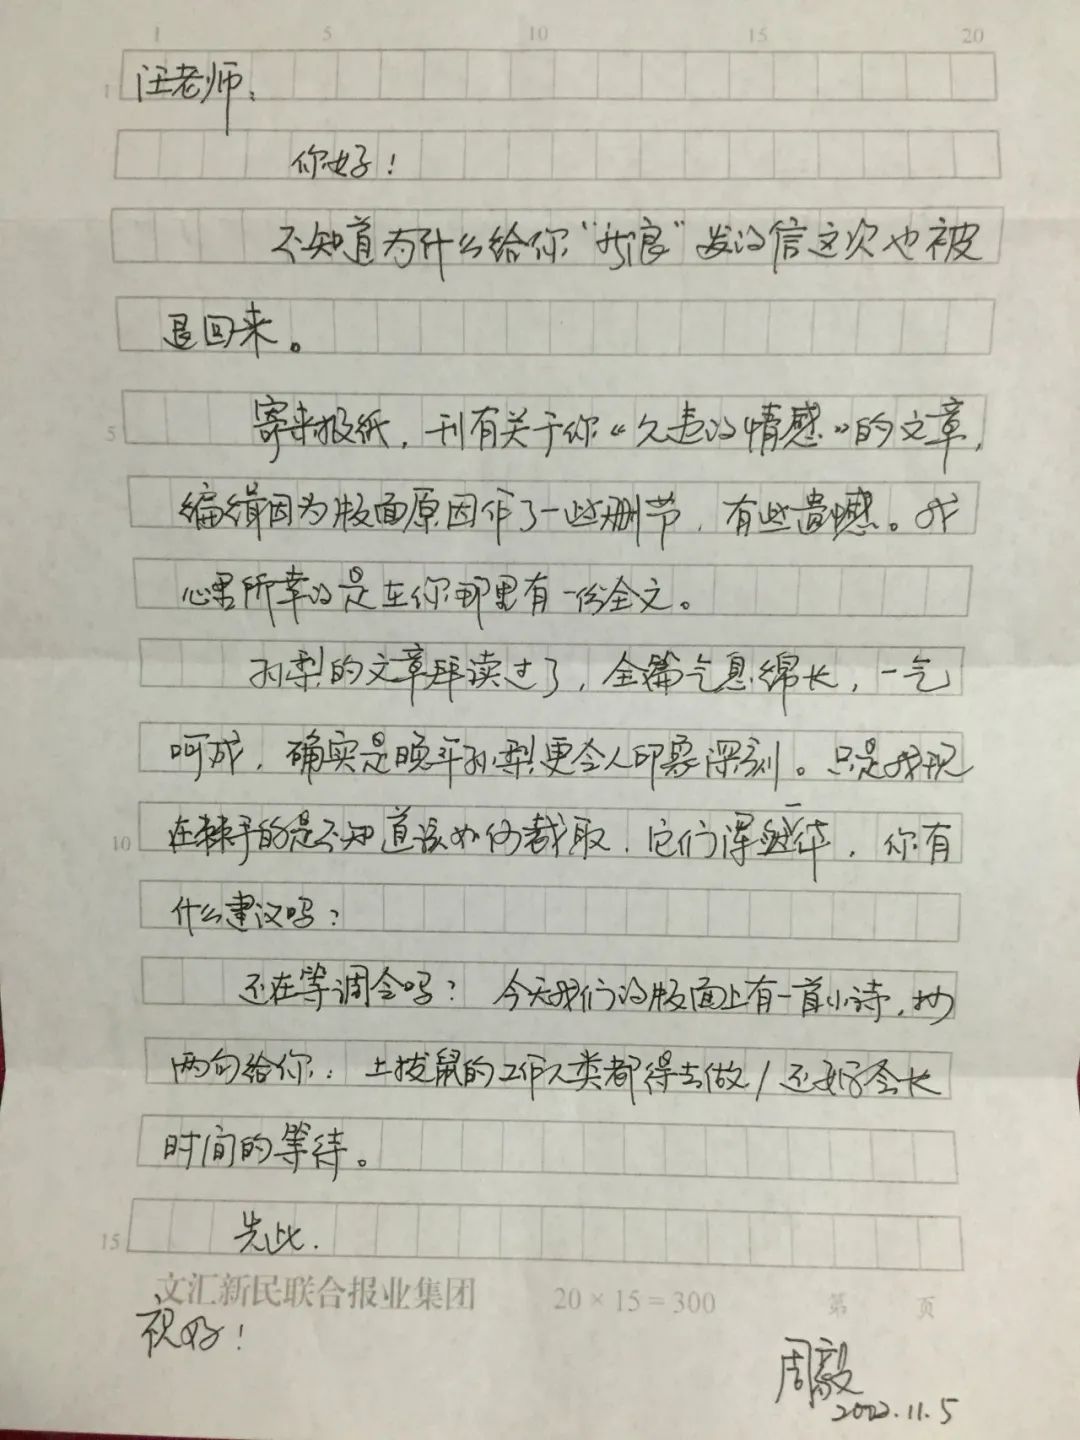 1 5 10 15 20
1 汪老师:
你好!
不知道为什么给你“新浪”发的信这次也被
退回来。
5 寄来报纸,刊有关于你《久违的情感》的文章,
编缉因为版面原因作了一些删节,有些遗憾。我
心里所幸的是在你那里有一份全文。
孙犁的文章拜读过了,全篇气息绵长,一气
呵成,确实是晚年孙犁更令人印象深刻。只是我现
10 在棘手的是不知道该如何裁取,它们浑然一体,你有
什么建议吗?
还在等调令吗?今天我们的版面上有一首小诗,抄
两句给你:土拨鼠的工作人类都得去做/还好会长
时间的等待。
15 先此.
文汇新民联合报业集团 20×15=300 第 页
祝好!
周毅
2002.11.5